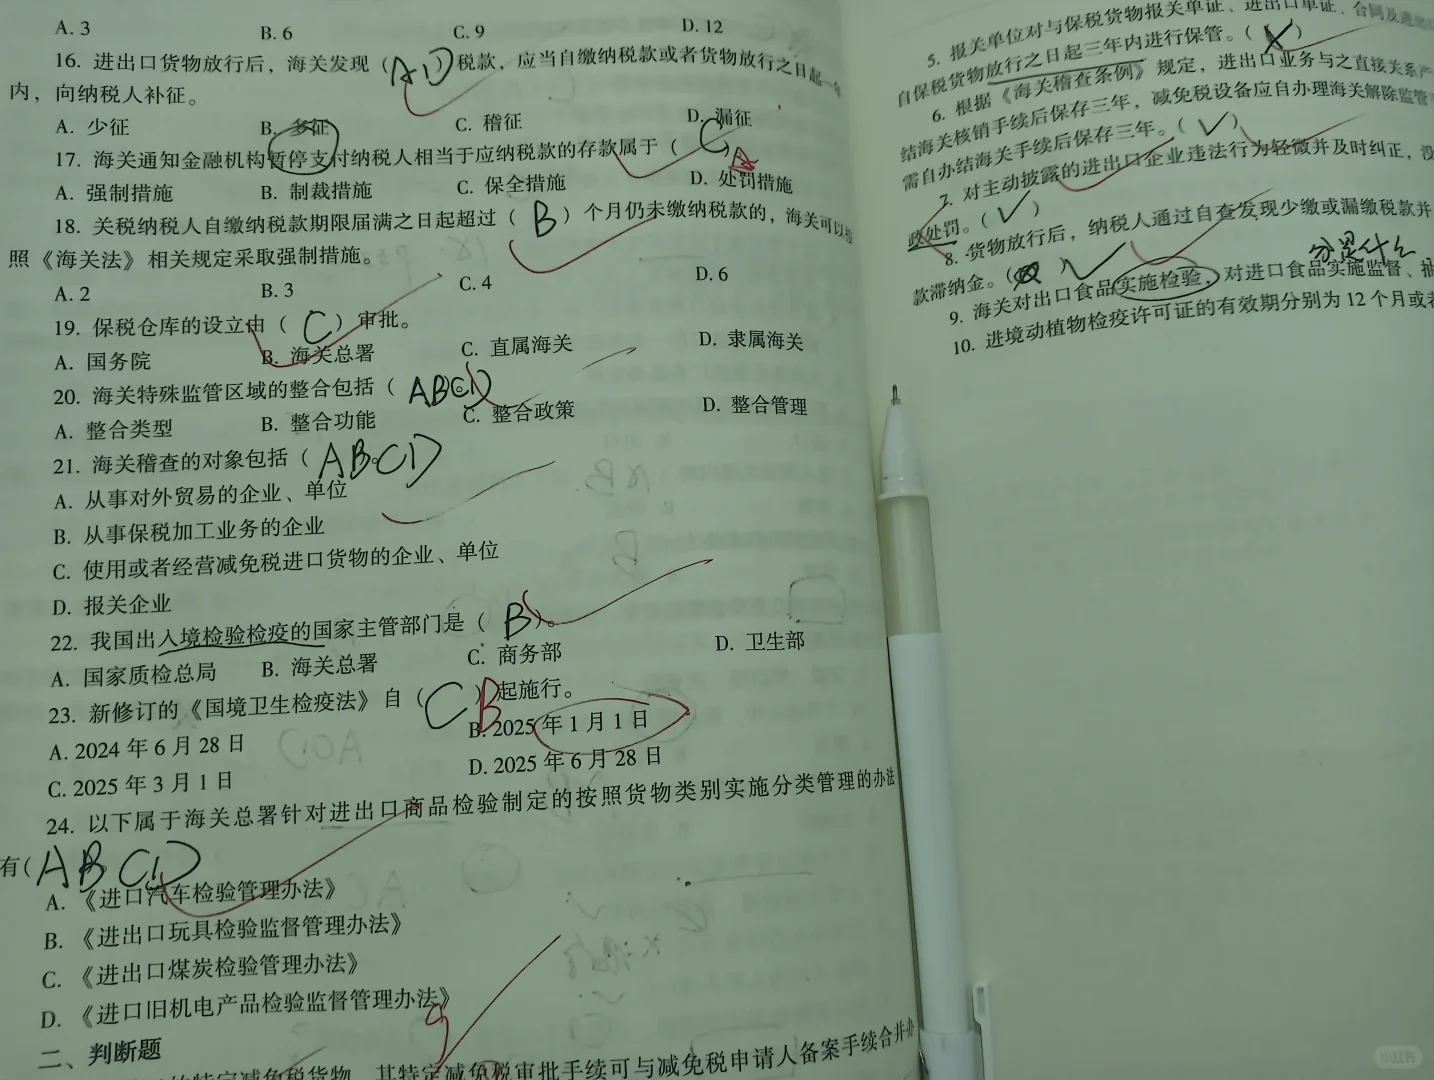 A. 3 B. 6 C. 9 D. 12
16. 进出口货物放行后，海关发现（AD）税款，应当自缴纳税款或者货物放行之日起一年
内，向纳税人补征。
A. 少征 B. 多征 C. 稽征 D. 漏征
17. 海关通知金融机构暂停支付纳税人相当于应纳税款的存款属于（C）
A. 强制措施 B. 制裁措施 C. 保全措施 D. 处罚措施
18. 关税纳税人自缴纳税款期限届满之日起超过（B）个月仍未缴纳税款的，海关可以按
照《海关法》相关规定采取强制措施。
A. 2 B. 3 C. 4 D. 6
19. 保税仓库的设立由（C）审批。
A. 国务院 B. 海关总署 C. 直属海关 D. 隶属海关
20. 海关特殊监管区域的整合包括（ABCD
A. 整合类型 B. 整合功能 C. 整合政策 D. 整合管理
21. 海关稽查的对象包括（ABCD
A. 从事对外贸易的企业、单位
B. 从事保税加工业务的企业
C. 使用或者经营减免税进口货物的企业、单位
D. 报关企业
22. 我国出入境检验检疫的国家主管部门是（B）。
A. 国家质检总局 B. 海关总署 C. 商务部 D. 卫生部
23. 新修订的《国境卫生检疫法》自（C）B起施行。
A. 2024 年 6 月 28 日 B. 2025 年 1 月 1 日
C. 2025 年 3 月 1 日 D. 2025 年 6 月 28 日
24. 以下属于海关总署针对进出口商品检验制定的按照货物类别实施分类管理的办法
有（ABCD
A. 《进口汽车检验管理办法》
B. 《进出口玩具检验监督管理办法》
C. 《进出口煤炭检验管理办法》
D. 《进口旧机电产品检验监督管理办法》
二、判断题
特定减免税货物，其特定减免税审批手续可与减免税申请人备案手续合并办
5. 报关单位对与保税货物报关单证、进出口单证、合同及进出
自保税货物放行之日起三年内进行保管。（×）
6. 根据《海关稽查条例》规定，进出口业务与之直接关系产
结海关核销手续后保存三年，减免税设备应自办理海关解除监管
需自办结海关手续后保存三年。（✓）
7. 对主动披露的进出口企业违法行为轻微并及时纠正，没
政处罚。（✓）
8. 货物放行后，纳税人通过自查发现少缴或漏缴税款并
款滞纳金。（）✓ 分是什么
9. 海关对出口食品实施检验，对进口食品实施监督、抽
10. 进境动植物检疫许可证的有效期分别为 12 个月或者
小红书